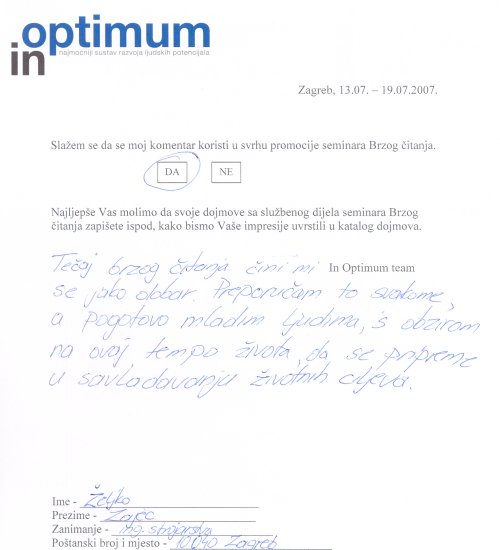 in optimum
najmoćniji sustav razvoja ljudskih potencijala
Zagreb, 13.07. – 19.07.2007.
Slažem se da se moj komentar koristi u svrhu promocije seminara Brzog čitanja.
DA NE
Najljepše Vas molimo da svoje dojmove sa službenog dijela seminara Brzog
čitanja zapišete ispod, kako bismo Vaše impresije uvrstili u katalog dojmova.
Tečaj brzog čitanja čini mi In Optimum team
se jako dobar. Preporučam to svakome,
a pogotovo mladim ljudima, s obzirom
na ovaj tempo života, da se pripreme
u savladavanju životnih ciljeva.
Ime - Željko
Prezime - Zajec
Zanimanje - ing. strojarstva
Poštanski broj i mjesto - 10040 Zagreb